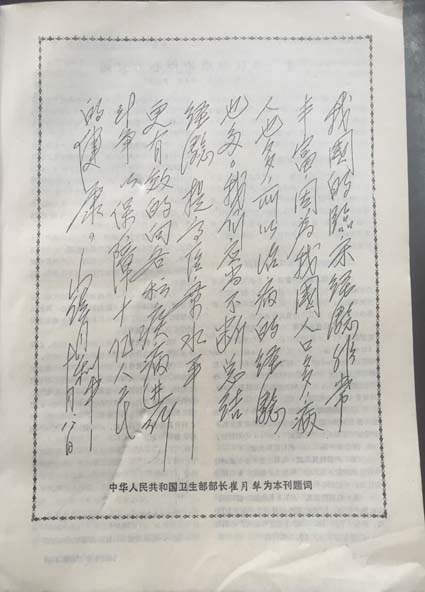 我國的臨床經驗非常
丰富。因为我國人口多,病
人也多,所以治病的經驗
也多。我们应当不断总结
經驗,提高医療水平
更有效的向各种疾病进行
斗争,以保障十亿人民
的健康。崔月犁
中华人民共和国卫生部部长崔月犁为本刊题词